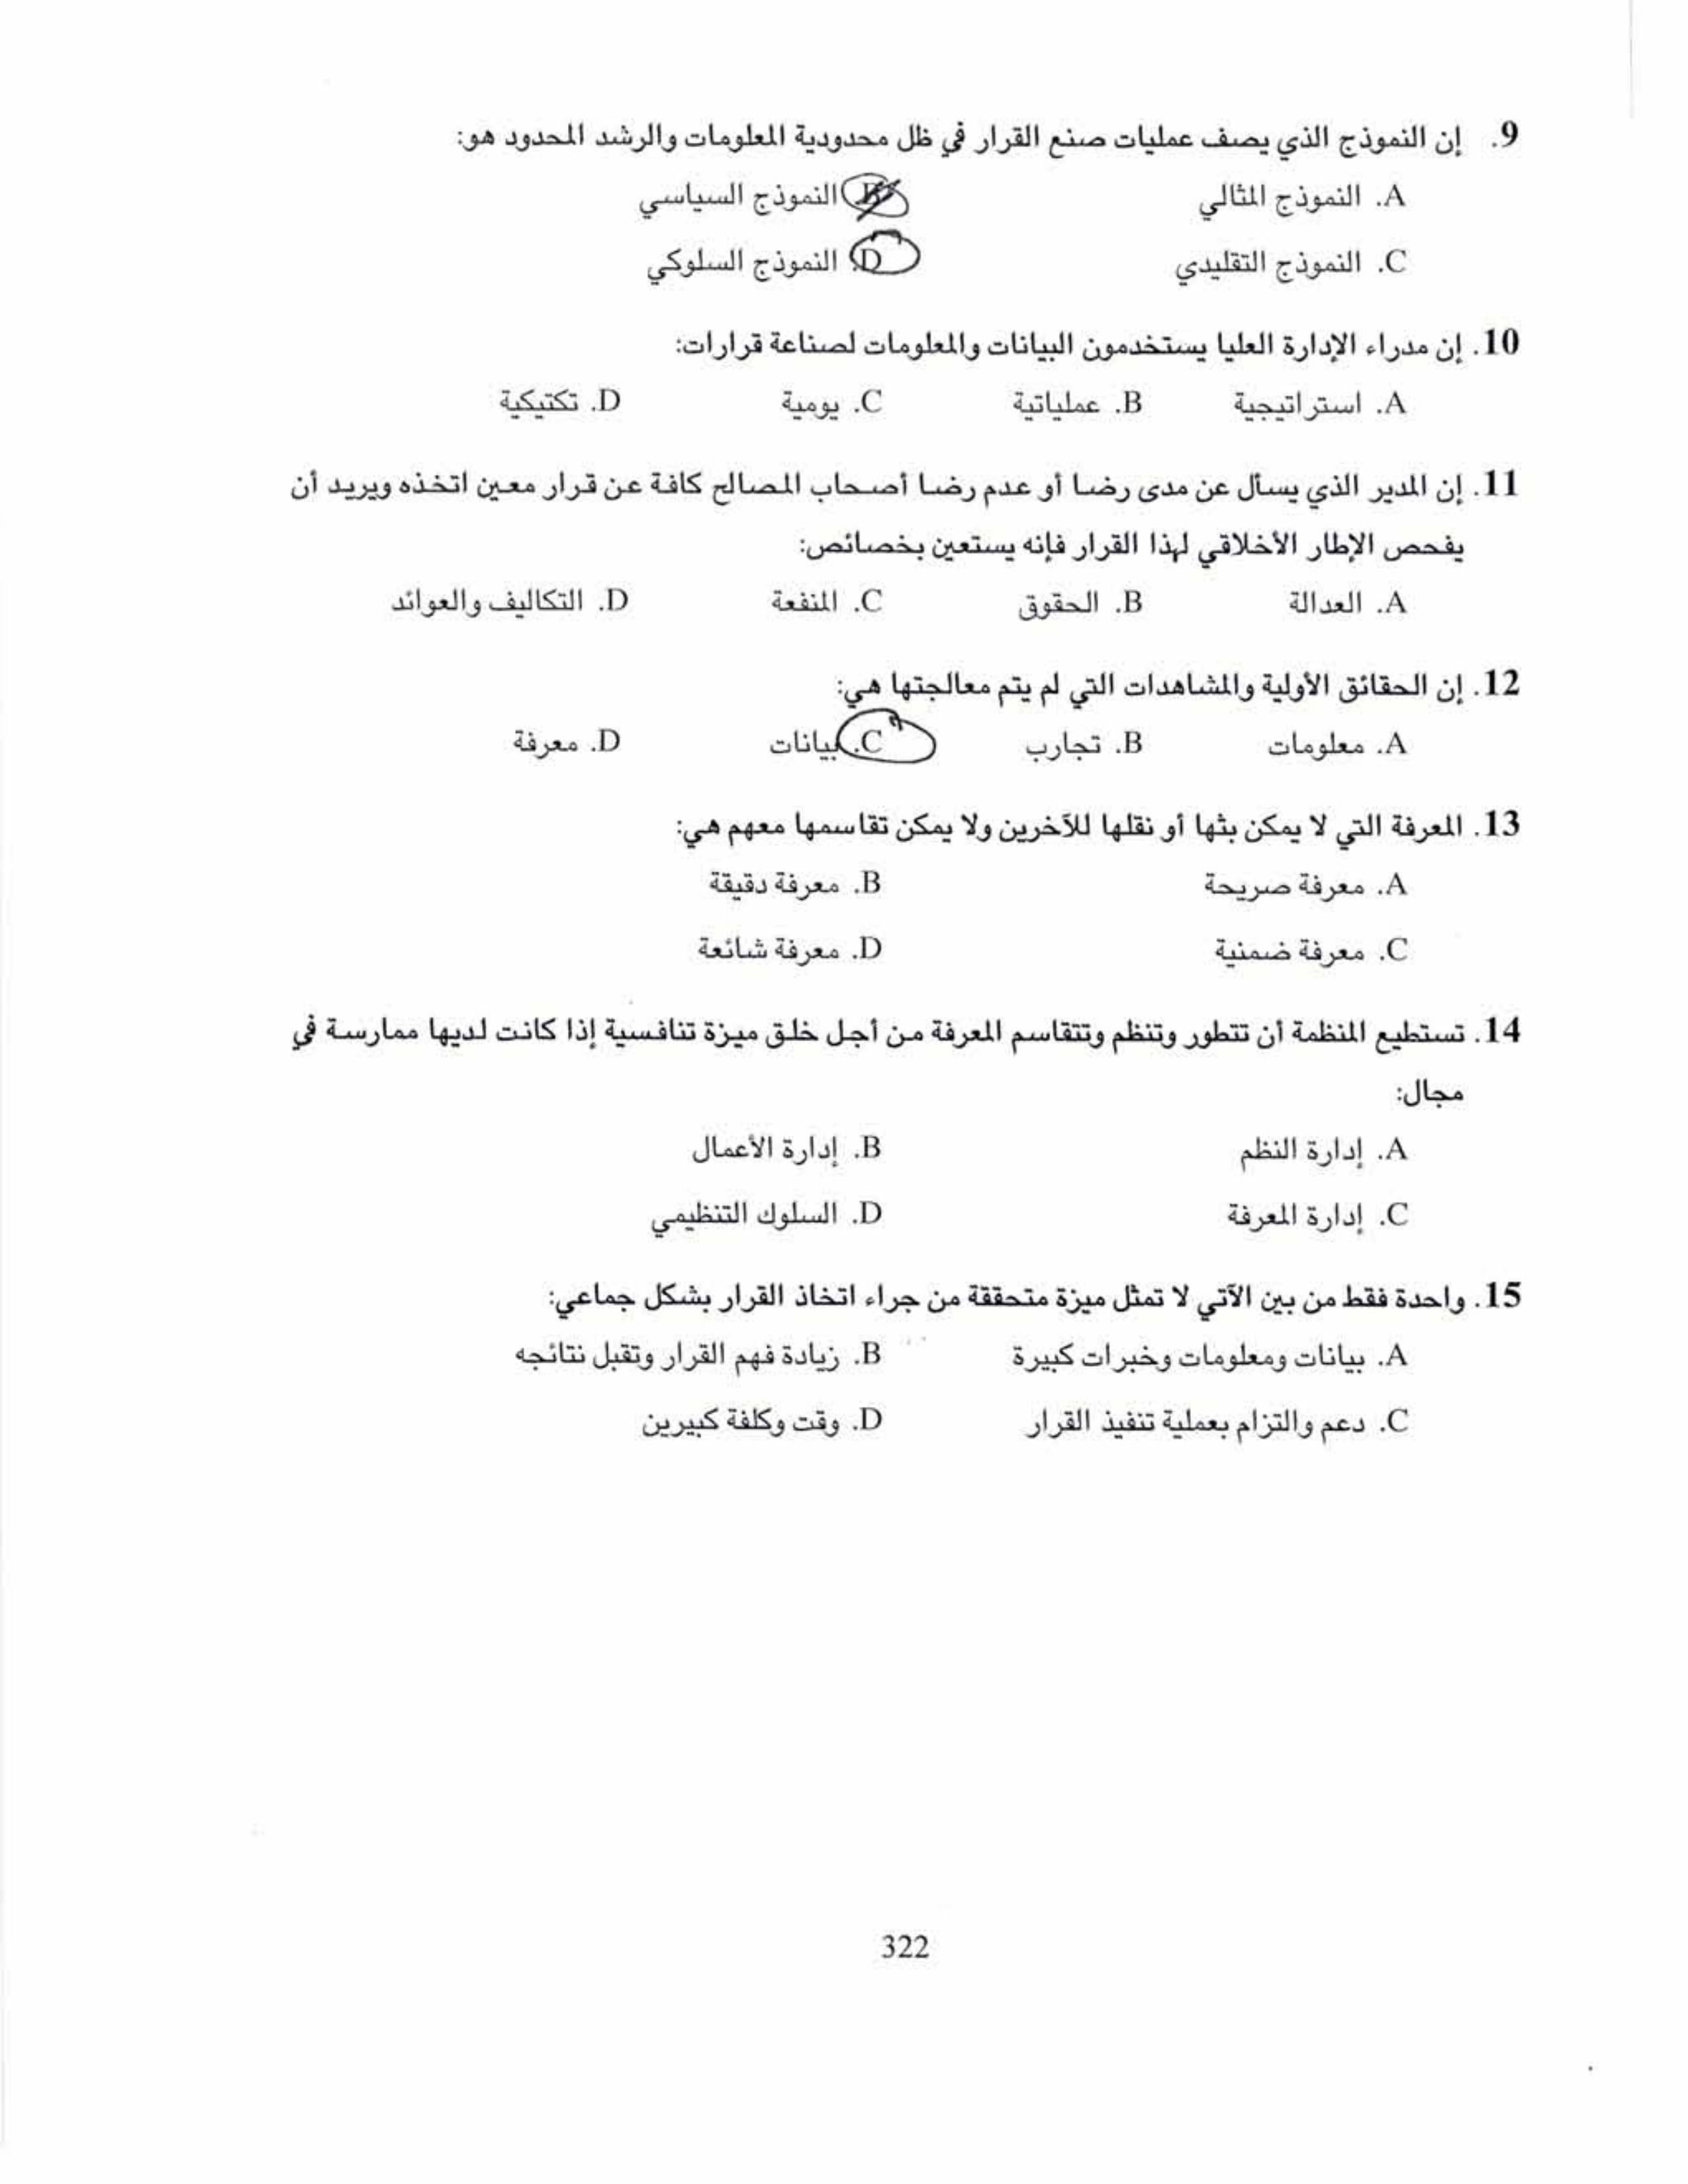 9. إن النموذج الذي يصف عمليات صنع القرار في ظل محدودية المعلومات والرشد المحدود هو:
A. النموذج المثالي B. النموذج السياسي
C. النموذج التقليدي D. النموذج السلوكي
10. إن مدراء الإدارة العليا يستخدمون البيانات والمعلومات لصناعة قرارات:
A. استراتيجية B. عملياتية C. يومية D. تكتيكية
11. إن المدير الذي يسأل عن مدى رضا أو عدم رضا أصحاب المصالح كافة عن قرار معين اتخذه ويريد أن
يفحص الإطار الأخلاقي لهذا القرار فإنه يستعين بخصائص:
A. العدالة B. الحقوق C. المنفعة D. التكاليف والعوائد
12. إن الحقائق الأولية والمشاهدات التي لم يتم معالجتها هي:
A. معلومات B. تجارب C. بيانات D. معرفة
13. المعرفة التي لا يمكن بثها أو نقلها للآخرين ولا يمكن تقاسمها معهم هي:
A. معرفة صريحة B. معرفة دقيقة
C. معرفة ضمنية D. معرفة شائعة
14. تستطيع المنظمة أن تتطور وتنظم وتتقاسم المعرفة من أجل خلق ميزة تنافسية إذا كانت لديها ممارسة في
مجال:
A. إدارة النظم B. إدارة الأعمال
C. إدارة المعرفة D. السلوك التنظيمي
15. واحدة فقط من بين الآتي لا تمثل ميزة متحققة من جراء اتخاذ القرار بشكل جماعي:
A. بيانات ومعلومات وخبرات كبيرة B. زيادة فهم القرار وتقبل نتائجه
C. دعم والتزام بعملية تنفيذ القرار D. وقت وكلفة كبيرين
322